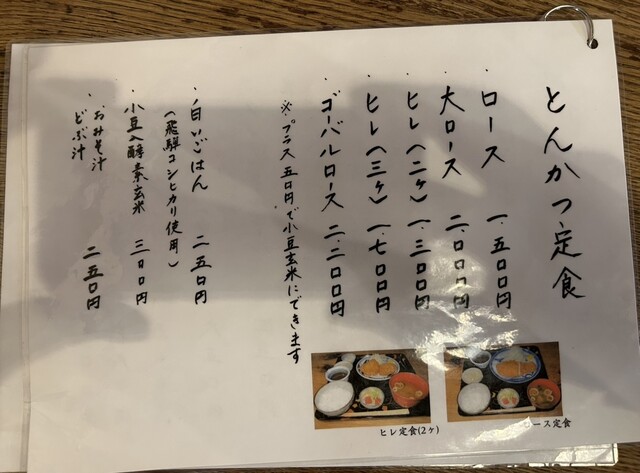 とんかつ定食
・ロース 一、五〇〇円
・大ロース 二、〇〇〇円
・ヒレ(二ヶ) 一、三〇〇円
・ヒレ(三ヶ) 一、七〇〇円
・ゴーバルロース 二、二〇〇円
※プラス五〇円で小豆玄米にできます
・白いごはん 二五〇円
(飛騨コシヒカリ使用)
・小豆入酵素玄米 三〇〇円
・おみそ汁
どぶ汁 二五〇円
ヒレ定食(2ヶ)
ロース定食